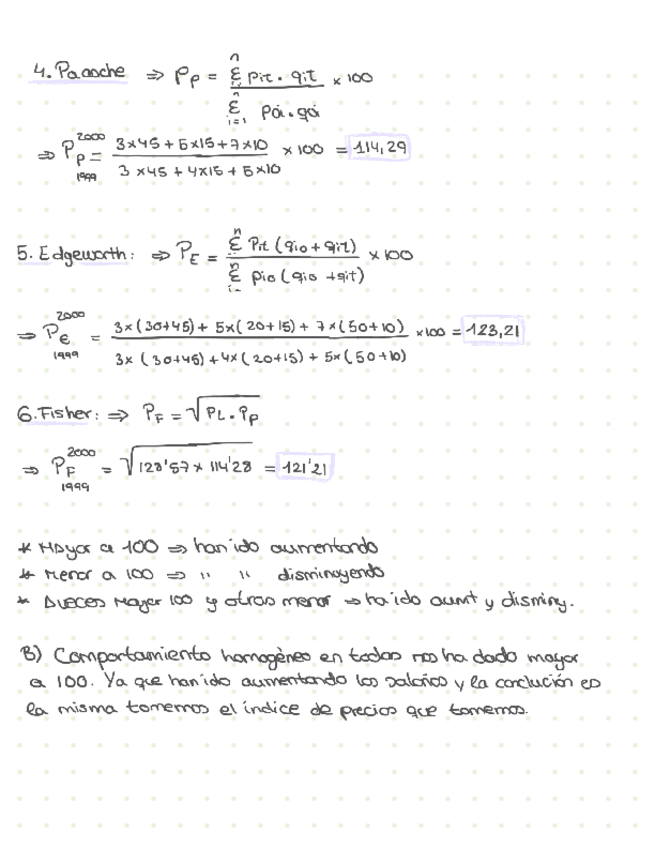 4. Paasche ⇒ Pp = n Σ pit · qit / n Σ i=1 poi · qoi × 100
⇒ Pp 2000 1999 = 3×45 + 5×15 + 7×10 / 3×45 + 4×15 + 5×10 × 100 = 114,29
5. Edgeworth: ⇒ PE = n Σ Pit (qio + qit) / n Σ i= pio (qio + qit) × 100
⇒ PE 2000 1999 = 3×(30+45) + 5×(20+15) + 7×(50+10) / 3×(30+45) + 4×(20+15) + 5×(50+10) ×100 = 123,21
6. Fisher: ⇒ PF = √PL · Pp
⇒ PF 2000 1999 = √128'57 × 114'28 = 121'21
* Mayor a 100 ⇒ han ido aumentando
* Menor a 100 ⇒ " " disminuyendo
* Aveces mayor 100 y otros menor ⇒ ha ido aumt y disminy.
B) Comportamiento homogéneo en todas nos ha dado mayor
a 100. Ya que han ido aumentando los salarios y la conclución es
la misma tomemos el índice de precios que tomemos.